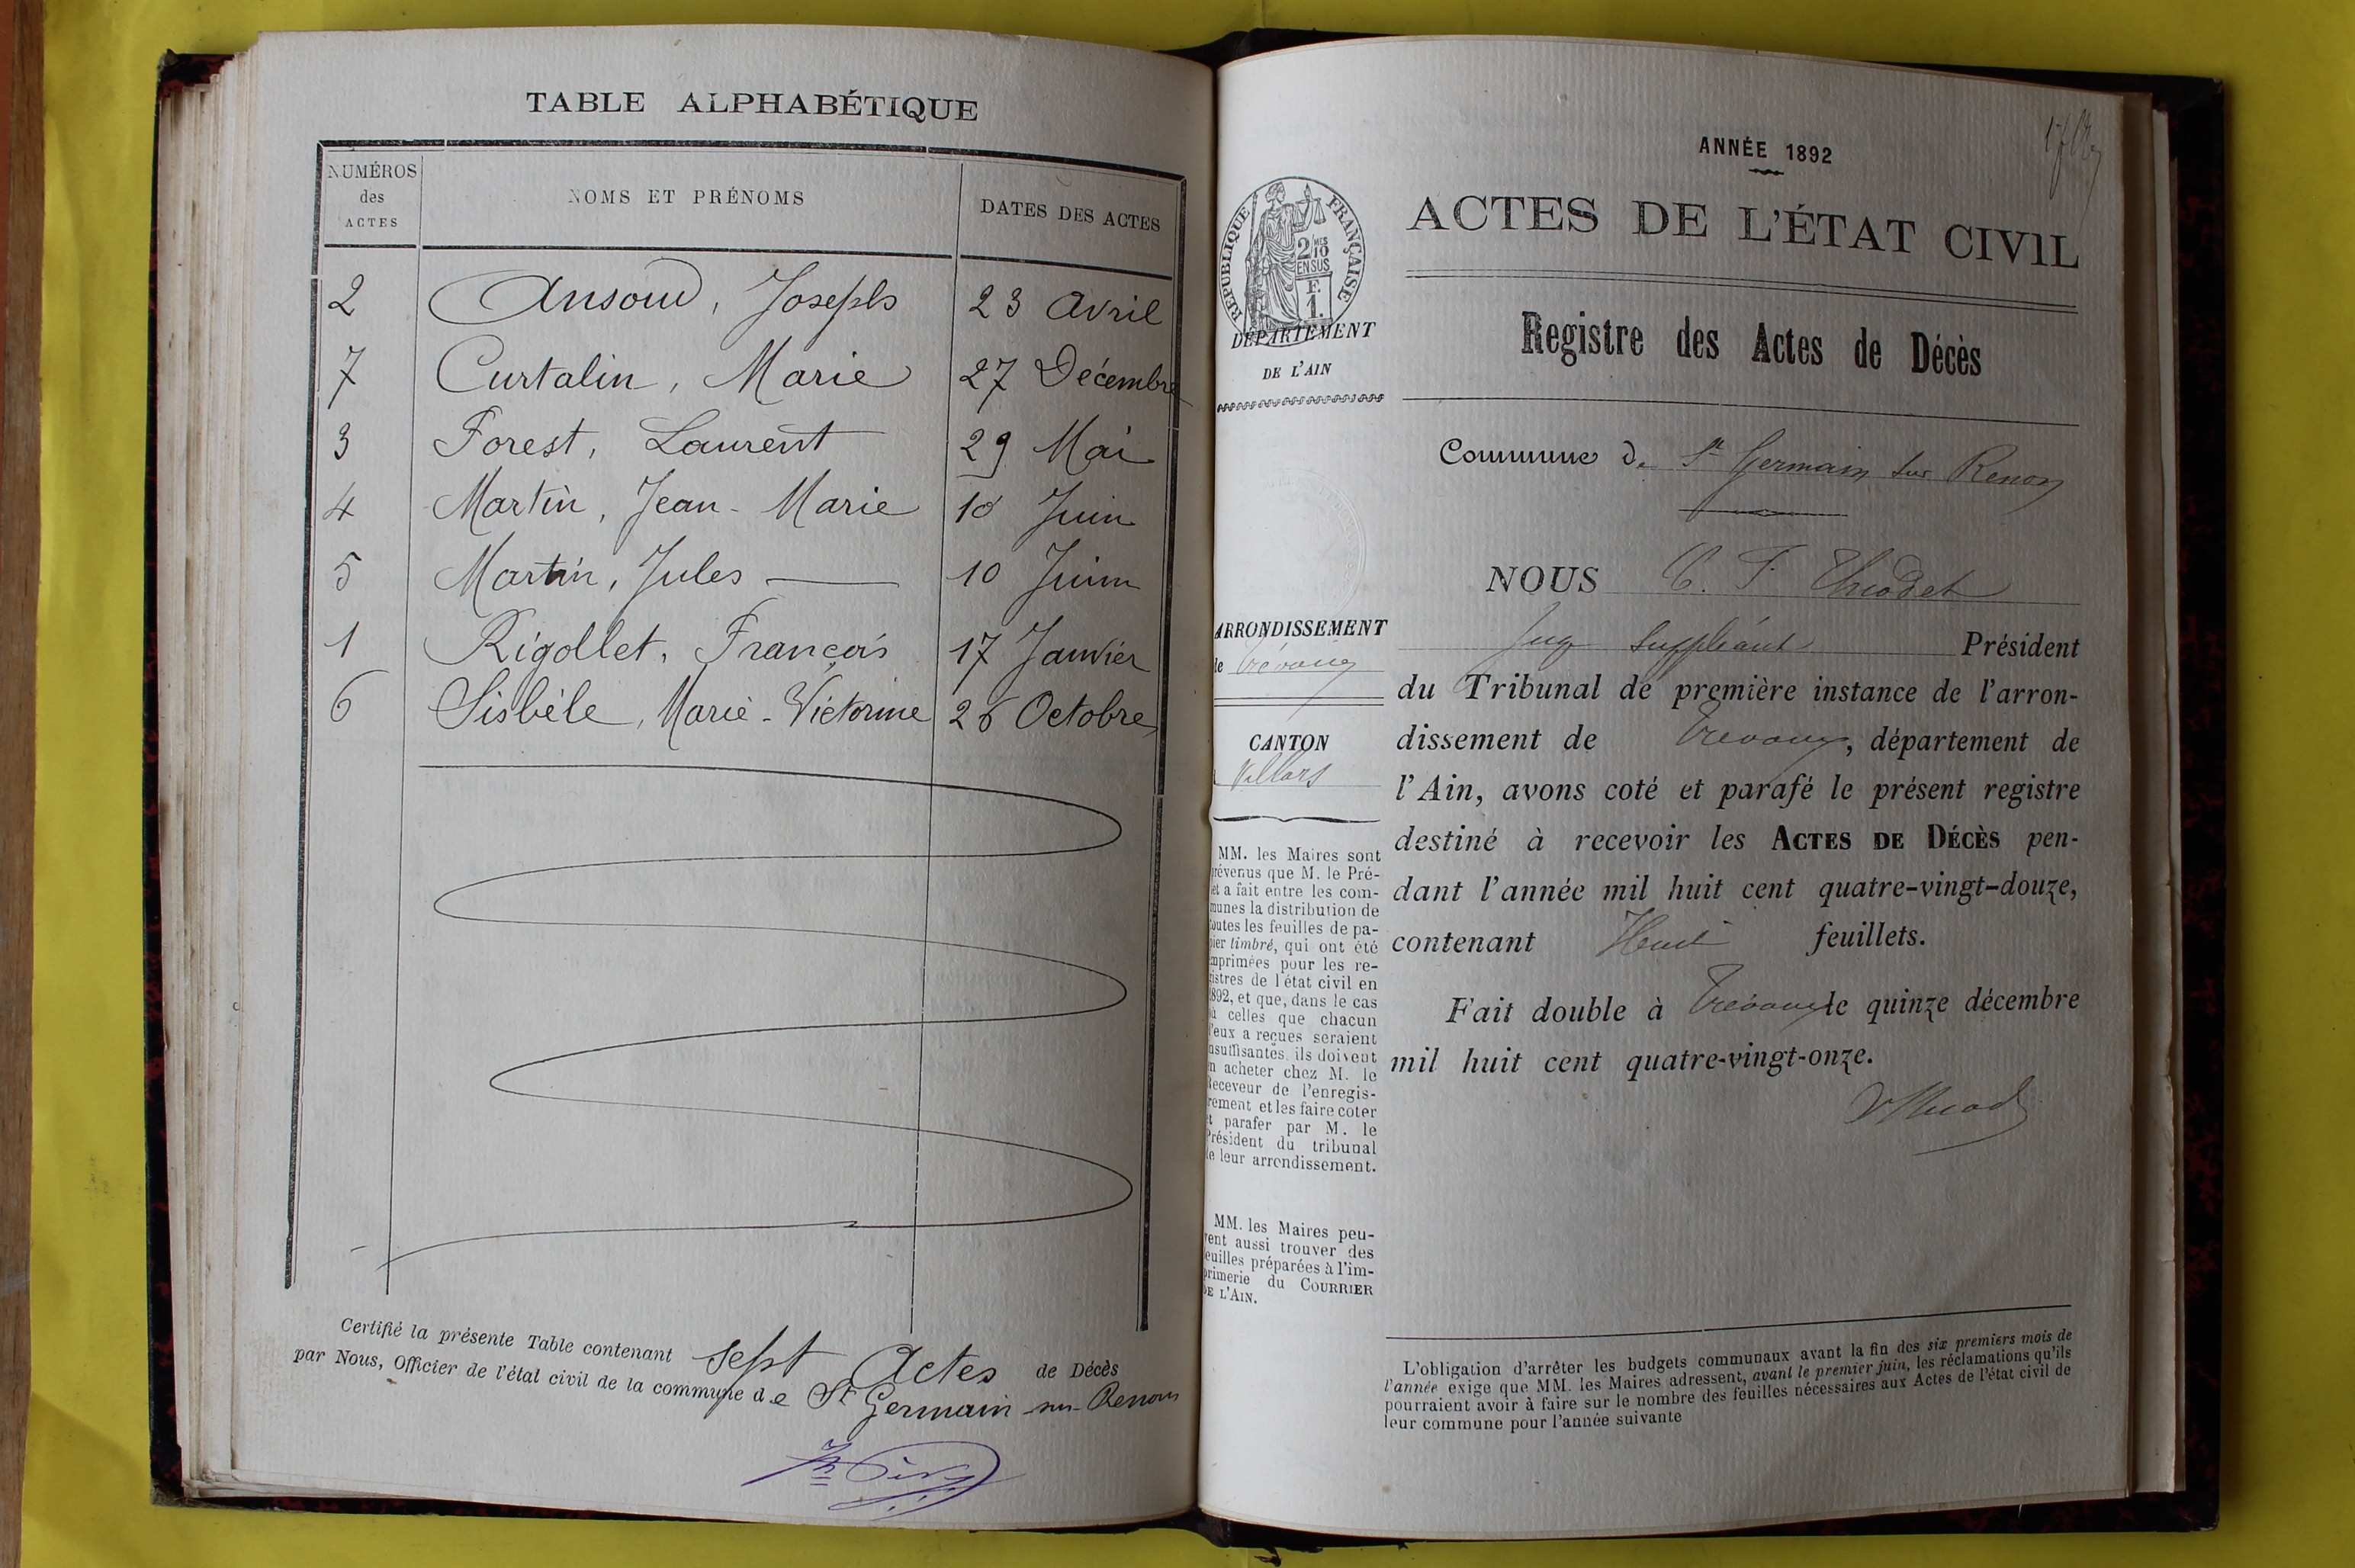 TABLE ALPHABÉTIQUE
NUMÉROS des ACTES
NOMS ET PRÉNOMS
DATES DES ACTES
2 Ansoud, Joseph 23 Avril
7 Curtalin, Marie 27 Décembre
3 Forest, Laurent 29 Mai
4 Martin, Jean-Marie 10 Juin
5 Martin, Jules 10 Juin
1 Rigollet, François 17 Janvier
6 Sisbèle, Marie-Victorine 26 Octobre
Certifié la présente Table contenant sept Actes de Décès
par Nous, Officier de l'état civil de la commune de St Germain sur Renom
ANNÉE 1892
ACTES DE L'ÉTAT CIVIL
Registre des Actes de Décès
Commune de St Germain sur Renon
NOUS C. F. Thiodet
Juge Suppléant Président
du Tribunal de première instance de l'arron-
dissement de Trévoux, département de
l'Ain, avons coté et parafé le présent registre
destiné à recevoir les ACTES DE DÉCÈS pen-
dant l'année mil huit cent quatre-vingt-douze,
contenant Huit feuillets.
Fait double à Trévoux le quinze décembre
mil huit cent quatre-vingt-onze.
L'obligation d'arrêter les budgets communaux avant la fin des six premiers mois de
l'année exige que MM. les Maires adressent, avant le premier juin, les réclamations qu'ils
pourraient avoir à faire sur le nombre des feuilles nécessaires aux Actes de l'état civil de
leur commune pour l'année suivante
RÉPUBLIQUE FRANÇAISE
2 MES 10
EN SUS
F.
1.
DÉPARTEMENT
DE L'AIN
ARRONDISSEMENT
de Trévoux
CANTON
Villars
MM. les Maires sont
prévenus que M. le Pré-
fet a fait entre les com-
munes la distribution de
toutes les feuilles de pa-
pier timbré, qui ont été
imprimées pour les re-
gistres de l'état civil en
1892, et que, dans le cas
où celles que chacun
d'eux a reçues seraient
insuffisantes, ils doivent
en acheter chez M. le
Receveur de l'enregis-
trement et les faire coter
et parafer par M. le
Président du tribunal
de leur arrondissement.
MM. les Maires peu-
vent aussi trouver des
feuilles préparées à l'im-
primerie du COURRIER
DE L'AIN.